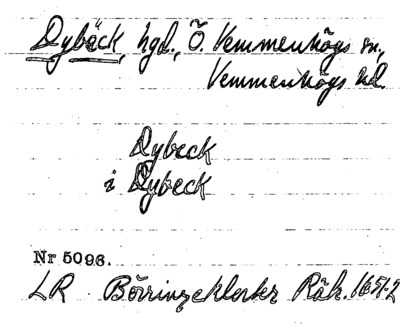 Dybäck, hgd., Ö. Vemmenhögs sn,
Vemmenhögs hd.
Dybeck
i Dybeck
Nr 5096.
LR Börringekloster Räk. 1651-2